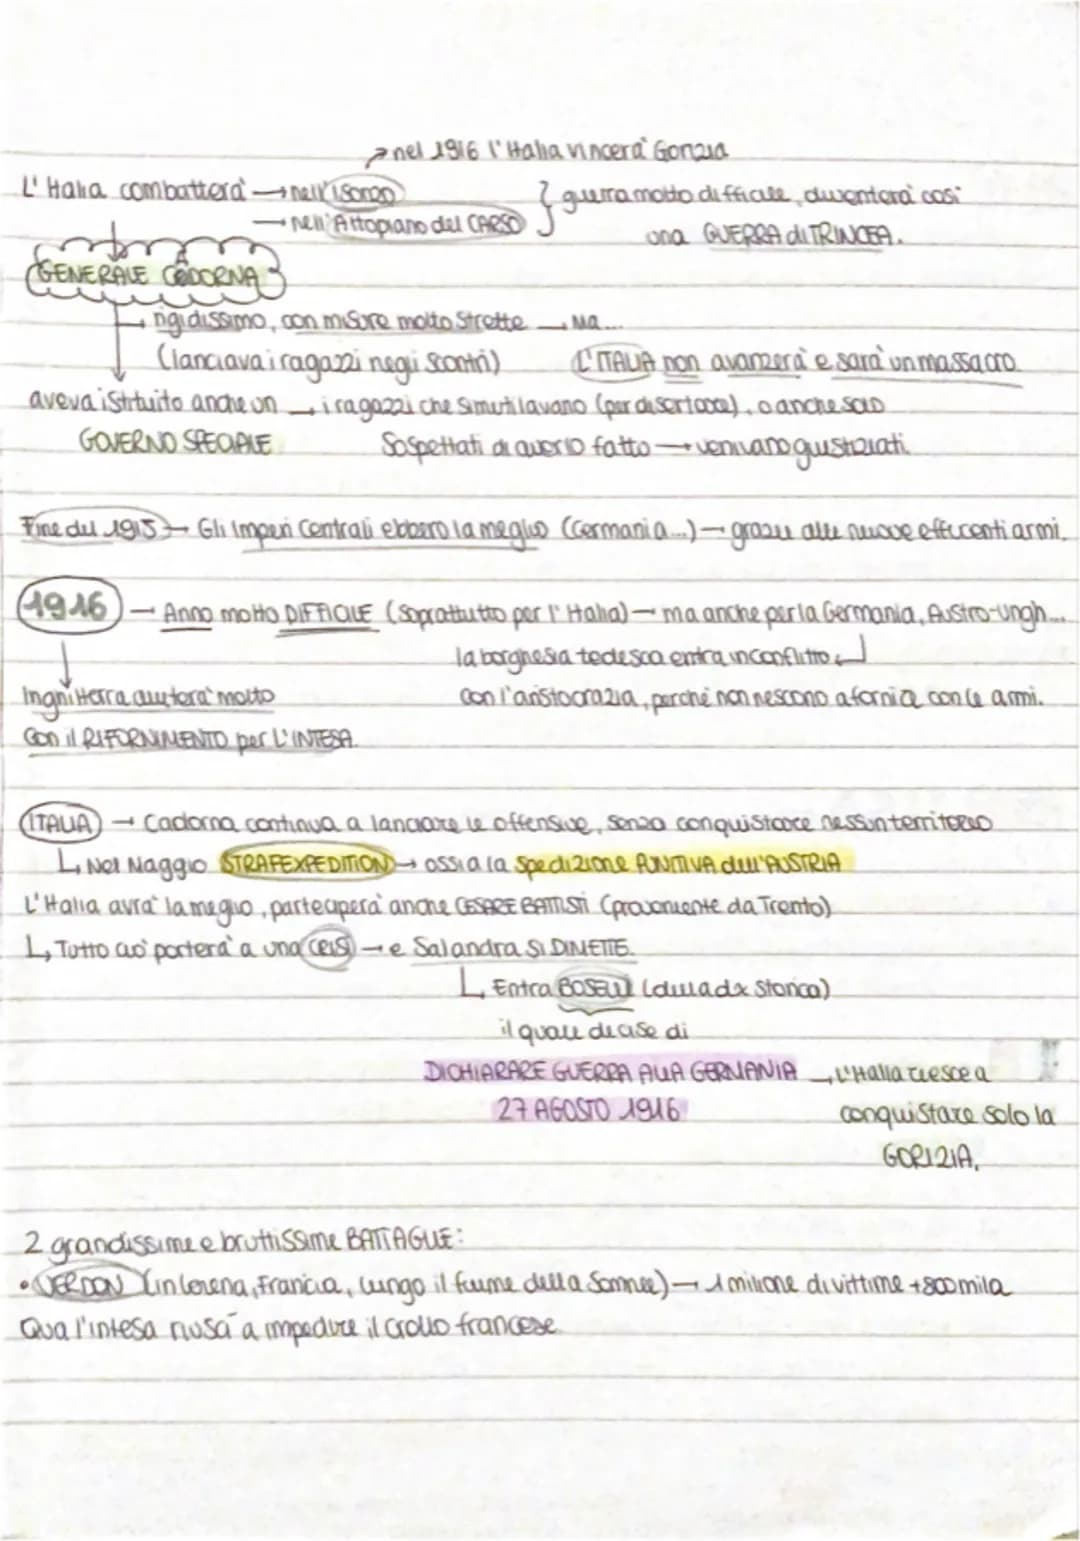 → nel 1916 l'Italia vincerà Gorizia
L'Italia combatterà → nell'isonzo } guerra molto difficile, diventerà così
→ nell'Altopiano del CARSO una GUERRA di TRINCEA.
GENERALE CADORNA
rigidissimo, con misure molto strette → Ma...
(lanciava i ragazzi negli scontri) L'ITALIA non avanzerà e sarà un massacro.
aveva istituito anche un → i ragazzi che si mutilavano (per disertare), o anche solo
GOVERNO SPECIALE sospettati di averlo fatto → venivano giustiziati.
Fine del 1915 → Gli Imperi Centrali ebbero la meglio (Germania...) → grazie alle nuove efficenti armi.
1916 → Anno molto DIFFICILE (soprattutto per l'Italia) → ma anche per la Germania, Austro-ungh...
la borghesia tedesca entra in conflitto
Inghilterra aiuterà molto con l'aristocrazia, perché non riescono a fornia con le armi.
con il RIFORNIMENTO per L'INTESA.
ITALIA → Cadorna continua a lanciare le offensive, senza conquistare nessun territorio
↳ Nel Maggio STRAFEXPEDITION → ossia la spedizione PUNITIVA dell'AUSTRIA
L'Italia avrà la meglio, parteciperà anche CESARE BATTISTI (proveniente da Trento)
↳ Tutto ciò porterà a una crisi → e Salandra SI DIMETTE.
↳ Entra BOSELLI (della dx storica)
il quale decise di
DICHIARARE GUERRA ALLA GERMANIA → L'Italia riesce a
27 AGOSTO 1916 conquistare solo la
GORIZIA.
2 grandissime e bruttissime BATTAGLIE:
• VERDON (in Lorena, Francia, lungo il fiume della Somme) → 1 milione di vittime + 800 mila
Qua l'intesa riuscì a impedire il crollo francese.